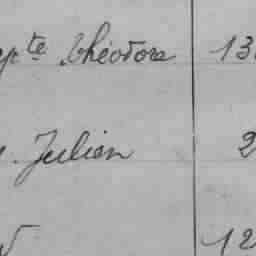 pte Théodore 13
Julien 2
12